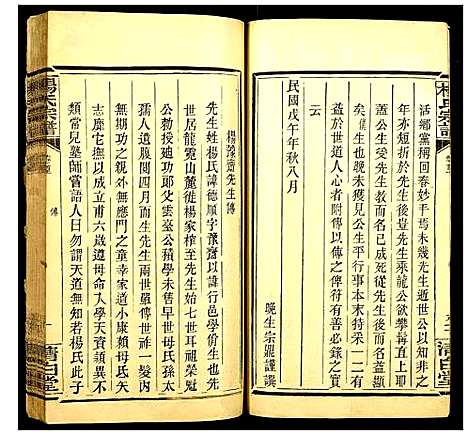 楊氏宗譜
清白堂
活鄉黨稱回春妙手焉未幾先生逝世公以行
年亦短折於先生後豈先生乘龍公欲攀髯直上乎
蓋先生有公而先生為已成死從先生而公教為無
矣僕生也晚未獲見公生平行事本末特采一二有
益於世道人心者附傳以傳之俾符有善必錄之實
云
民國戊午年秋八月
晚生宗鼎謹譔
楊豫齋先生傳
先生姓楊氏諱德順字豫齋以行誼著邑庠生
世居龍霓山麓從楊家榨至先生始七世耳祖榮魁
公勅授迪功郎父雲臺公積學未售早世母氏孫太
孺人遺腹四月而生先生兩世單傳世澤於一髮
無期功之親外無應門之童幸家道小康賴母氏矢
志靡它撫以成立甫六歲遵母命入學天資穎異不
類常兒塾師嘗語人曰勿謂天道無知若楊氏此子
楊氏宗譜
傳
清白堂